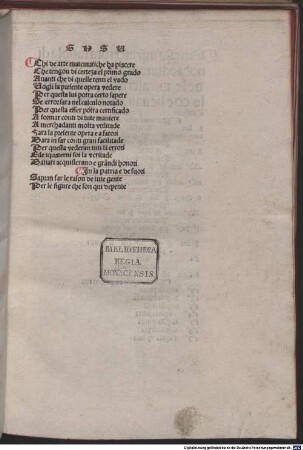 SVSV
Chi de arte matematiche ha piacere
Che tengon di certeza el primo grado
Auanti che di quelle tenti el vado
Vogli la presente opera vedere
Per questa lui potra certo sapere
Se error sara nel calculo notado
Per questa esser potra certificado
A formar conti di tute maniere
A merchadanti molta vtilitade
Fara la presente opera e a fatori
Dara in far conti gran facilitade
Per questa vederan tuti li errori
E de
Danari acquisteranno e grandi honori
In la patria e de fuori
Sapran far le rason de tute gente
Per le figure che son qui depente
BIBLIOTHECA
REGIA
MONACENSIS